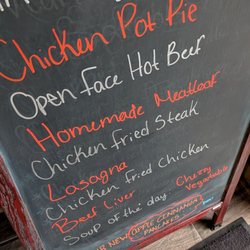 Chicken Pot Pie
Open Face Hot Beef
Homemade Meatloaf
Chicken fried Steak
Lasagna
Chicken fried Chicken
Beef Liver
Soup of the day Cheesy Vegetable
NEW APPLE CINNAMON
PANCAKES